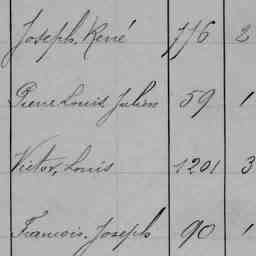 Joseph, René 776 2
Pierre Louis Julien 59 1
Victor, Louis 1201 3
Francois, Joseph 90 1